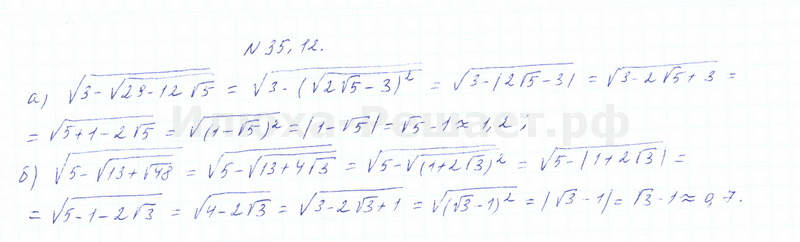 N 35,12.
а) √(3-√(29-12√5)) = √(3-(√(2√5-3)²)) = √(3-|2√5-3|) = √(3-2√5+3) =
= √(5+1-2√5) = √((1-√5)²) = |1-√5| = √5-1 ≈ 1,2;
б) √(5-√(13+√48)) = √(5-√(13+4√3)) = √(5-√((1+2√3)²)) = √(5-|1+2√3|) =
= √(5-1-2√3) = √(4-2√3) = √(3-2√3+1) = √((√3-1)²) = |√3-1| = √3-1 ≈ 0,7.